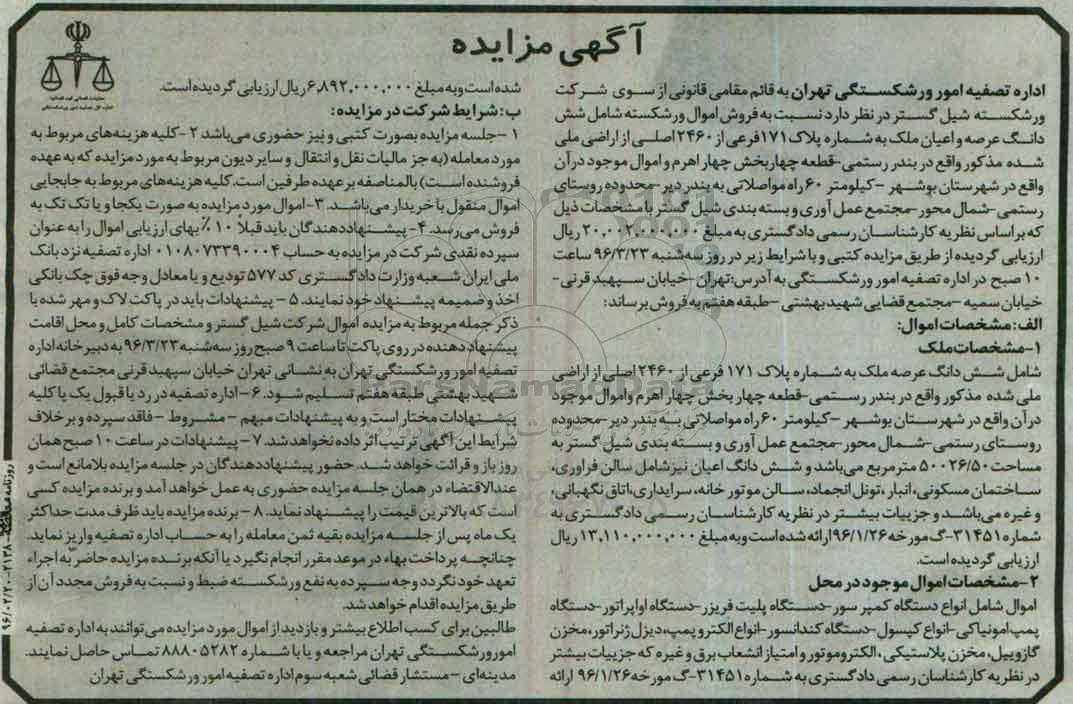 آگهی مزایده
اداره تصفیه امور ورشکستگی تهران به قائم مقامی قانونی از سوی شرکت
ورشکسته شیل گستر در نظر دارد نسبت به فروش اموال ورشکسته شامل شش
دانگ عرصه و اعیان ملک به شماره پلاک ۱۷۱ فرعی از ۲۴۶۰ اصلی از اراضی ملی
شده مذکور واقع در بندر رستمی-قطعه چهار بخش چهار اهرم و اموال موجود در آن
واقع در شهرستان بوشهر -کیلومتر ۶۰ راه مواصلاتی به بندر دیر-محدوده روستای
رستمی-شمال محور-مجتمع عمل آوری و بسته بندی شیل گستر با مشخصات ذیل
که بر اساس نظریه کارشناسان رسمی دادگستری به مبلغ ۲۰,۰۰۲,۰۰۰,۰۰۰ ریال
ارزیابی گردیده از طریق مزایده کتبی و با شرایط زیر در روز سه شنبه ۹۶/۳/۲۳ ساعت
۱۰ صبح در اداره تصفیه امور ورشکستگی به آدرس:تهران-خیابان سپهبد قرنی-
خیابان سمیه -مجتمع قضایی شهید بهشتی -طبقه هفتم به فروش برساند:
الف: مشخصات اموال:
۱-مشخصات ملک
شامل شش دانگ عرصه ملک به شماره پلاک ۱۷۱ فرعی از ۲۴۶۰ اصلی از اراضی
ملی شده مذکور واقع در بندر رستمی-قطعه چهار بخش چهار اهرم و اموال موجود
در آن واقع در شهرستان بوشهر -کیلومتر ۶۰ راه مواصلاتی به بندر دیر-محدوده
روستای رستمی-شمال محور-مجتمع عمل آوری و بسته بندی شیل گستر به
مساحت ۵۰۰۲۶/۵۰ مترمربع می‌باشد و شش دانگ اعیان نیز شامل سالن فراوری،
ساختمان مسکونی، انبار، تونل انجماد، سالن موتور خانه، سرایداری، اتاق نگهبانی،
و غیره می‌باشد و جزییات بیشتر در نظریه کارشناسان رسمی دادگستری به
شماره ۳۱۴۵۱-گ مورخه ۹۶/۱/۲۶ ارائه شده است و به مبلغ ۱۳,۱۱۰,۰۰۰,۰۰۰ ریال
ارزیابی گردیده است.
۲-مشخصات اموال موجود در محل
اموال شامل انواع دستگاه کمپرسور-دستگاه پلیت فریزر-دستگاه اواپراتور-دستگاه
پمپ امونیاکی-انواع کپسول-دستگاه کندانسور-انواع الکتروپمپ، دیزل ژنراتور، مخزن
گازوییل، مخزن پلاستیکی، الکتروموتور و امتیاز انشعاب برق و غیره که جزییات بیشتر
در نظریه کارشناسان رسمی دادگستری به شماره ۳۱۴۵۱-گ مورخه ۹۶/۱/۲۶ ارائه
شده است و به مبلغ ۶,۸۹۲,۰۰۰,۰۰۰ ریال ارزیابی گردیده است.
ب: شرایط شرکت در مزایده:
۱-جلسه مزایده بصورت کتبی و نیز حضوری می‌باشد ۲-کلیه هزینه‌های مربوط به
مورد معامله (به جز مالیات نقل و انتقال و سایر دیون مربوط به مورد مزایده که به عهده
فروشنده است) بالمناصفه بر عهده طرفین است. کلیه هزینه‌های مربوط به جابجایی
اموال منقول با خریدار می‌باشد. ۳-اموال مورد مزایده به صورت یکجا و یا تک تک به
فروش می‌رسد. ۴-پیشنهاددهندگان باید قبلاً ۱۰٪ بهای ارزیابی اموال را به عنوان
سپرده نقدی شرکت در مزایده به حساب ۰۱۰۸۰۷۳۳۹۰۰۰۴ اداره تصفیه نزد بانک
ملی ایران شعبه وزارت دادگستری کد ۵۷۷ تودیع و یا معادل وجه فوق چک بانکی
اخذ و ضمیمه پیشنهاد خود نمایند. ۵-پیشنهادات باید در پاکت لاک و مهر شده با
ذکر جمله مربوط به مزایده اموال شرکت شیل گستر و مشخصات کامل و محل اقامت
پیشنهاد دهنده در روی پاکت تا ساعت ۹ صبح روز سه شنبه ۹۶/۳/۲۳ به دبیرخانه اداره
تصفیه امور ورشکستگی تهران به نشانی تهران خیابان سپهبد قرنی مجتمع قضائی
شهید بهشتی طبقه هفتم تسلیم شود. ۶-اداره تصفیه در رد یا قبول یک یا کلیه
پیشنهادات مختار است و به پیشنهادات مبهم -مشروط -فاقد سپرده و برخلاف
شرایط این آگهی ترتیب اثر داده نخواهد شد. ۷-پیشنهادات در ساعت ۱۰ صبح همان
روز باز و قرائت خواهد شد. حضور پیشنهاددهندگان در جلسه مزایده بلامانع است و
عندالاقتضاء در همان جلسه مزایده حضوری به عمل خواهد آمد و برنده مزایده کسی
است که بالاترین قیمت را پیشنهاد نماید. ۸-برنده مزایده باید ظرف مدت حداکثر
یک ماه پس از جلسه مزایده بقیه ثمن معامله را به حساب اداره تصفیه واریز نماید.
چنانچه پرداخت بهاء در موعد مقرر انجام نگیرد یا آنکه برنده مزایده حاضر به اجراء
تعهد خود نگردد وجه سپرده به نفع ورشکسته ضبط و نسبت به فروش مجدد آن از
طریق مزایده اقدام خواهد شد.
طالبین برای کسب اطلاع بیشتر و بازدید از اموال مورد مزایده می‌توانند به اداره تصفیه
امور ورشکستگی تهران مراجعه و یا با شماره ۸۸۸۰۵۲۸۲ تماس حاصل نمایند.
مدینه‌ای -مستشار قضائی شعبه سوم اداره تصفیه امور ورشکستگی تهران
ParsNamadData